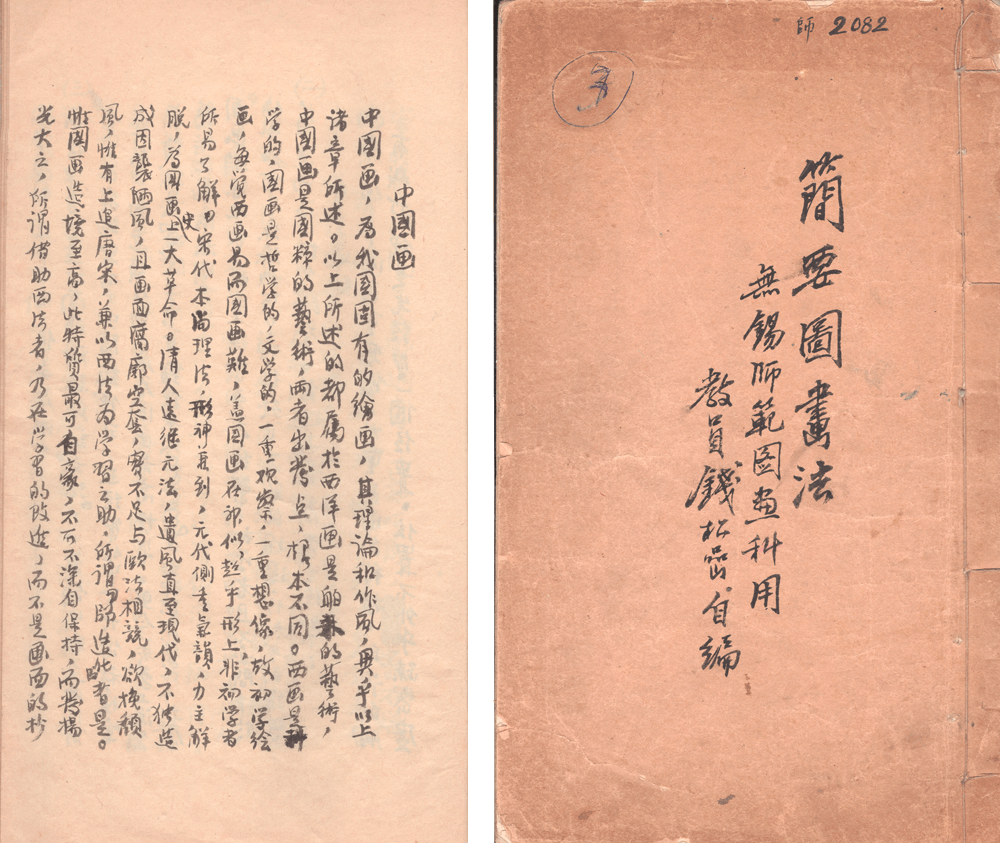 師 2082
3
簡要圖畫法
無錫師範図画科用
教員錢松嵒自編
中國画
中國画，為我國固有的繪画，其理論和作風，異乎以上
諸章所述。以上所述的都屬於西洋画是舶來的藝術，
中國画是國粹的藝術，兩者出發点，根本不同。西画是科
学的，國画是哲学的，文学的，一重观察，一重想像，故初学绘
画，每覺西画易而國画難，盖國画在神似，超乎形上，非初学者
所易了解，宋代本尚理法，形神兼到，元代側重氣韻，力主解
脫，為國画史上一大革命。清人遠继元法，遺風直至現代，不独造
成因襲陋風，且画面腐廓空套，實不足与歐法相競，欲挽頹
風，惟有上追唐宋，兼以西法为学習之助，所謂師造化者是。
惟國画造境至高，此特質最可自豪，不可不深自保持，而發揚
光大之，所谓借助西法者，乃在学習的改進，而不是画面的抄